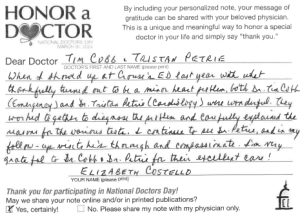 HONOR a
DOCTOR
NATIONAL DOCTORS' DAY
By including your personalized note, your message of
gratitude can be shared with your beloved physician.
This is a unique and meaningful way to honor a special
doctor in your life and simply say "thank you."
Dear Doctor TIM COBB & TRISTAN PETRIE
DOCTOR'S FIRST AND LAST NAME (please print)
When I showed up at Crouse's ED last year with what
thankfully turned out to be a minor heart problem, both Dr. Tim Cobb
(Emergency) and Dr. Tristan Petrie (Cardiology) were wonderful. They
worked together to diagnose the problem and carefully explained the
reasons for the various tests. I continue to see Dr. Petrie, and in my
follow-up visits he's thorough and compassionate. I'm very
grateful to Dr. Cobb & Dr. Petrie for their excellent care!
ELIZABETH COSTELLO
YOUR NAME (please print)
Thank you for participating in National Doctors Day!
May we share your note online and/or in printed publications?
Yes, certainly! No. Please share my note with my physician only.